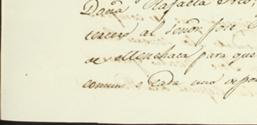 Doña Rafaela
tercero al Señor José
de Menchaca para que
comun o cada uno